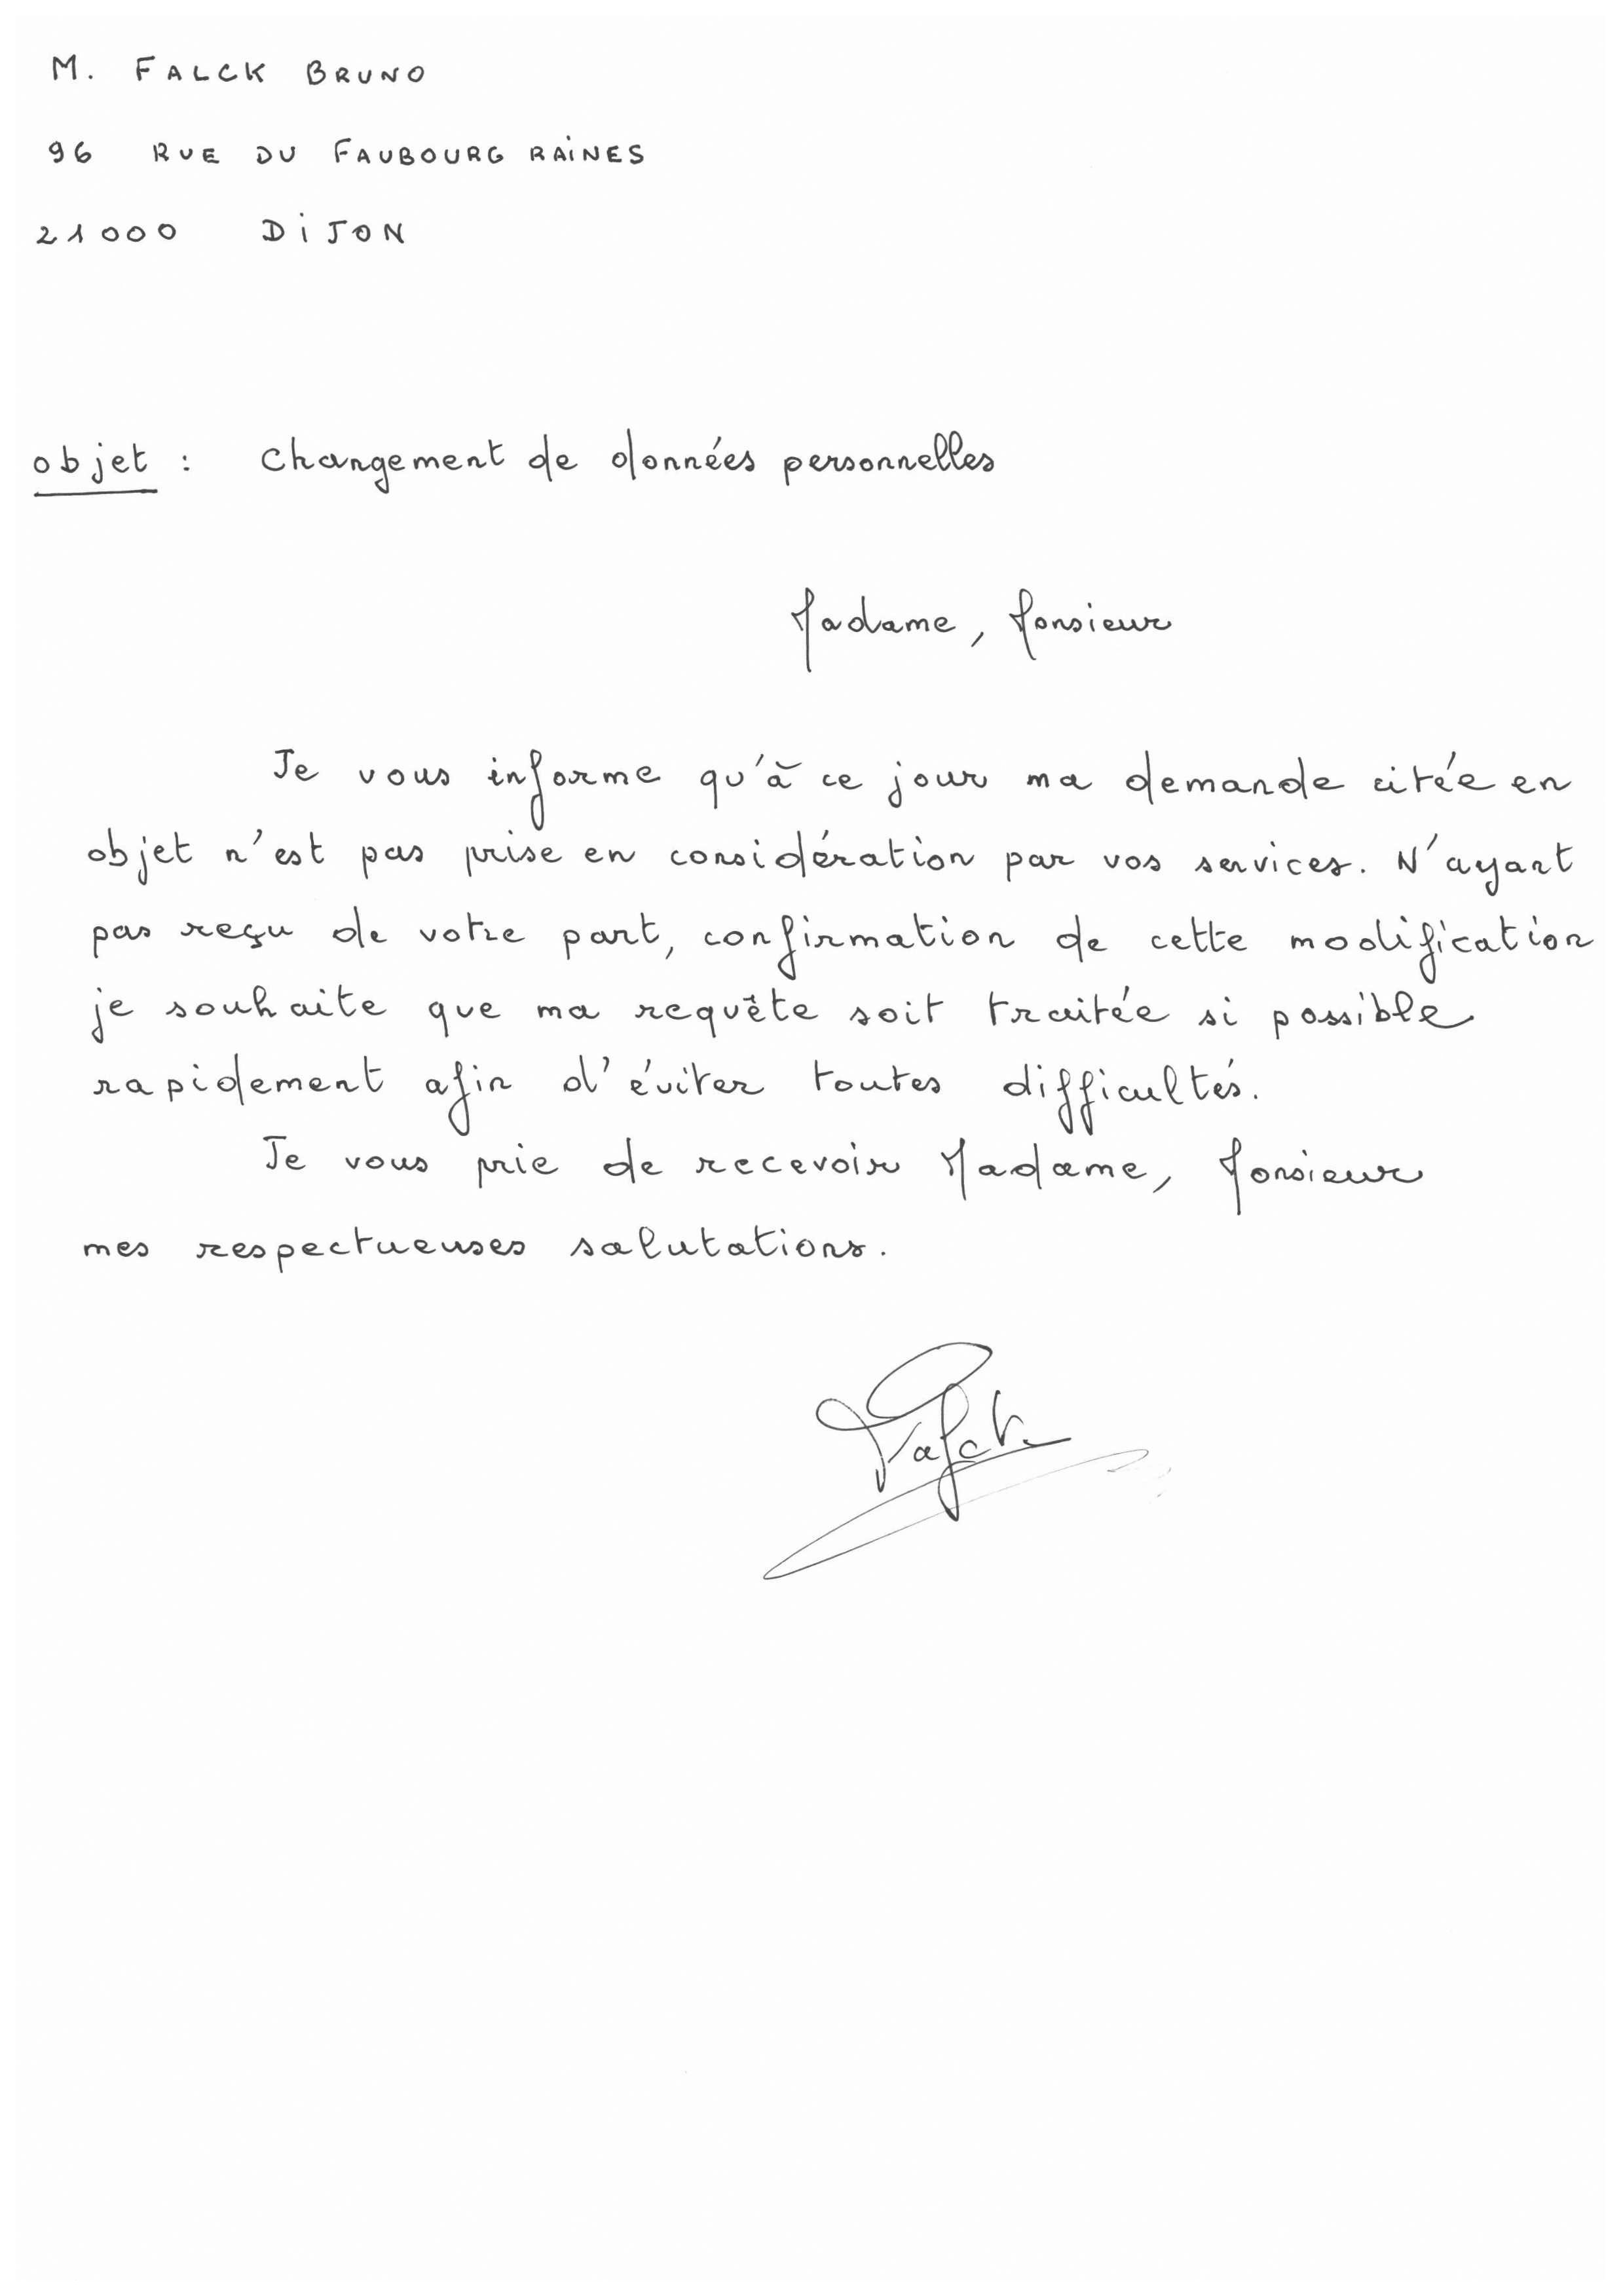 M. FALCK BRUNO
96 RUE DU FAUBOURG RAINES
21000 DIJON
objet : Changement de données personnelles
Madame, Monsieur
Je vous informe qu'à ce jour ma demande citée en
objet n'est pas prise en considération par vos services. N'ayant
pas reçu de votre part, confirmation de cette modification
je souhaite que ma requête soit traitée si possible
rapidement afin d'éviter toutes difficultés.
Je vous prie de recevoir Madame, Monsieur
mes respectueuses salutations.
Falck